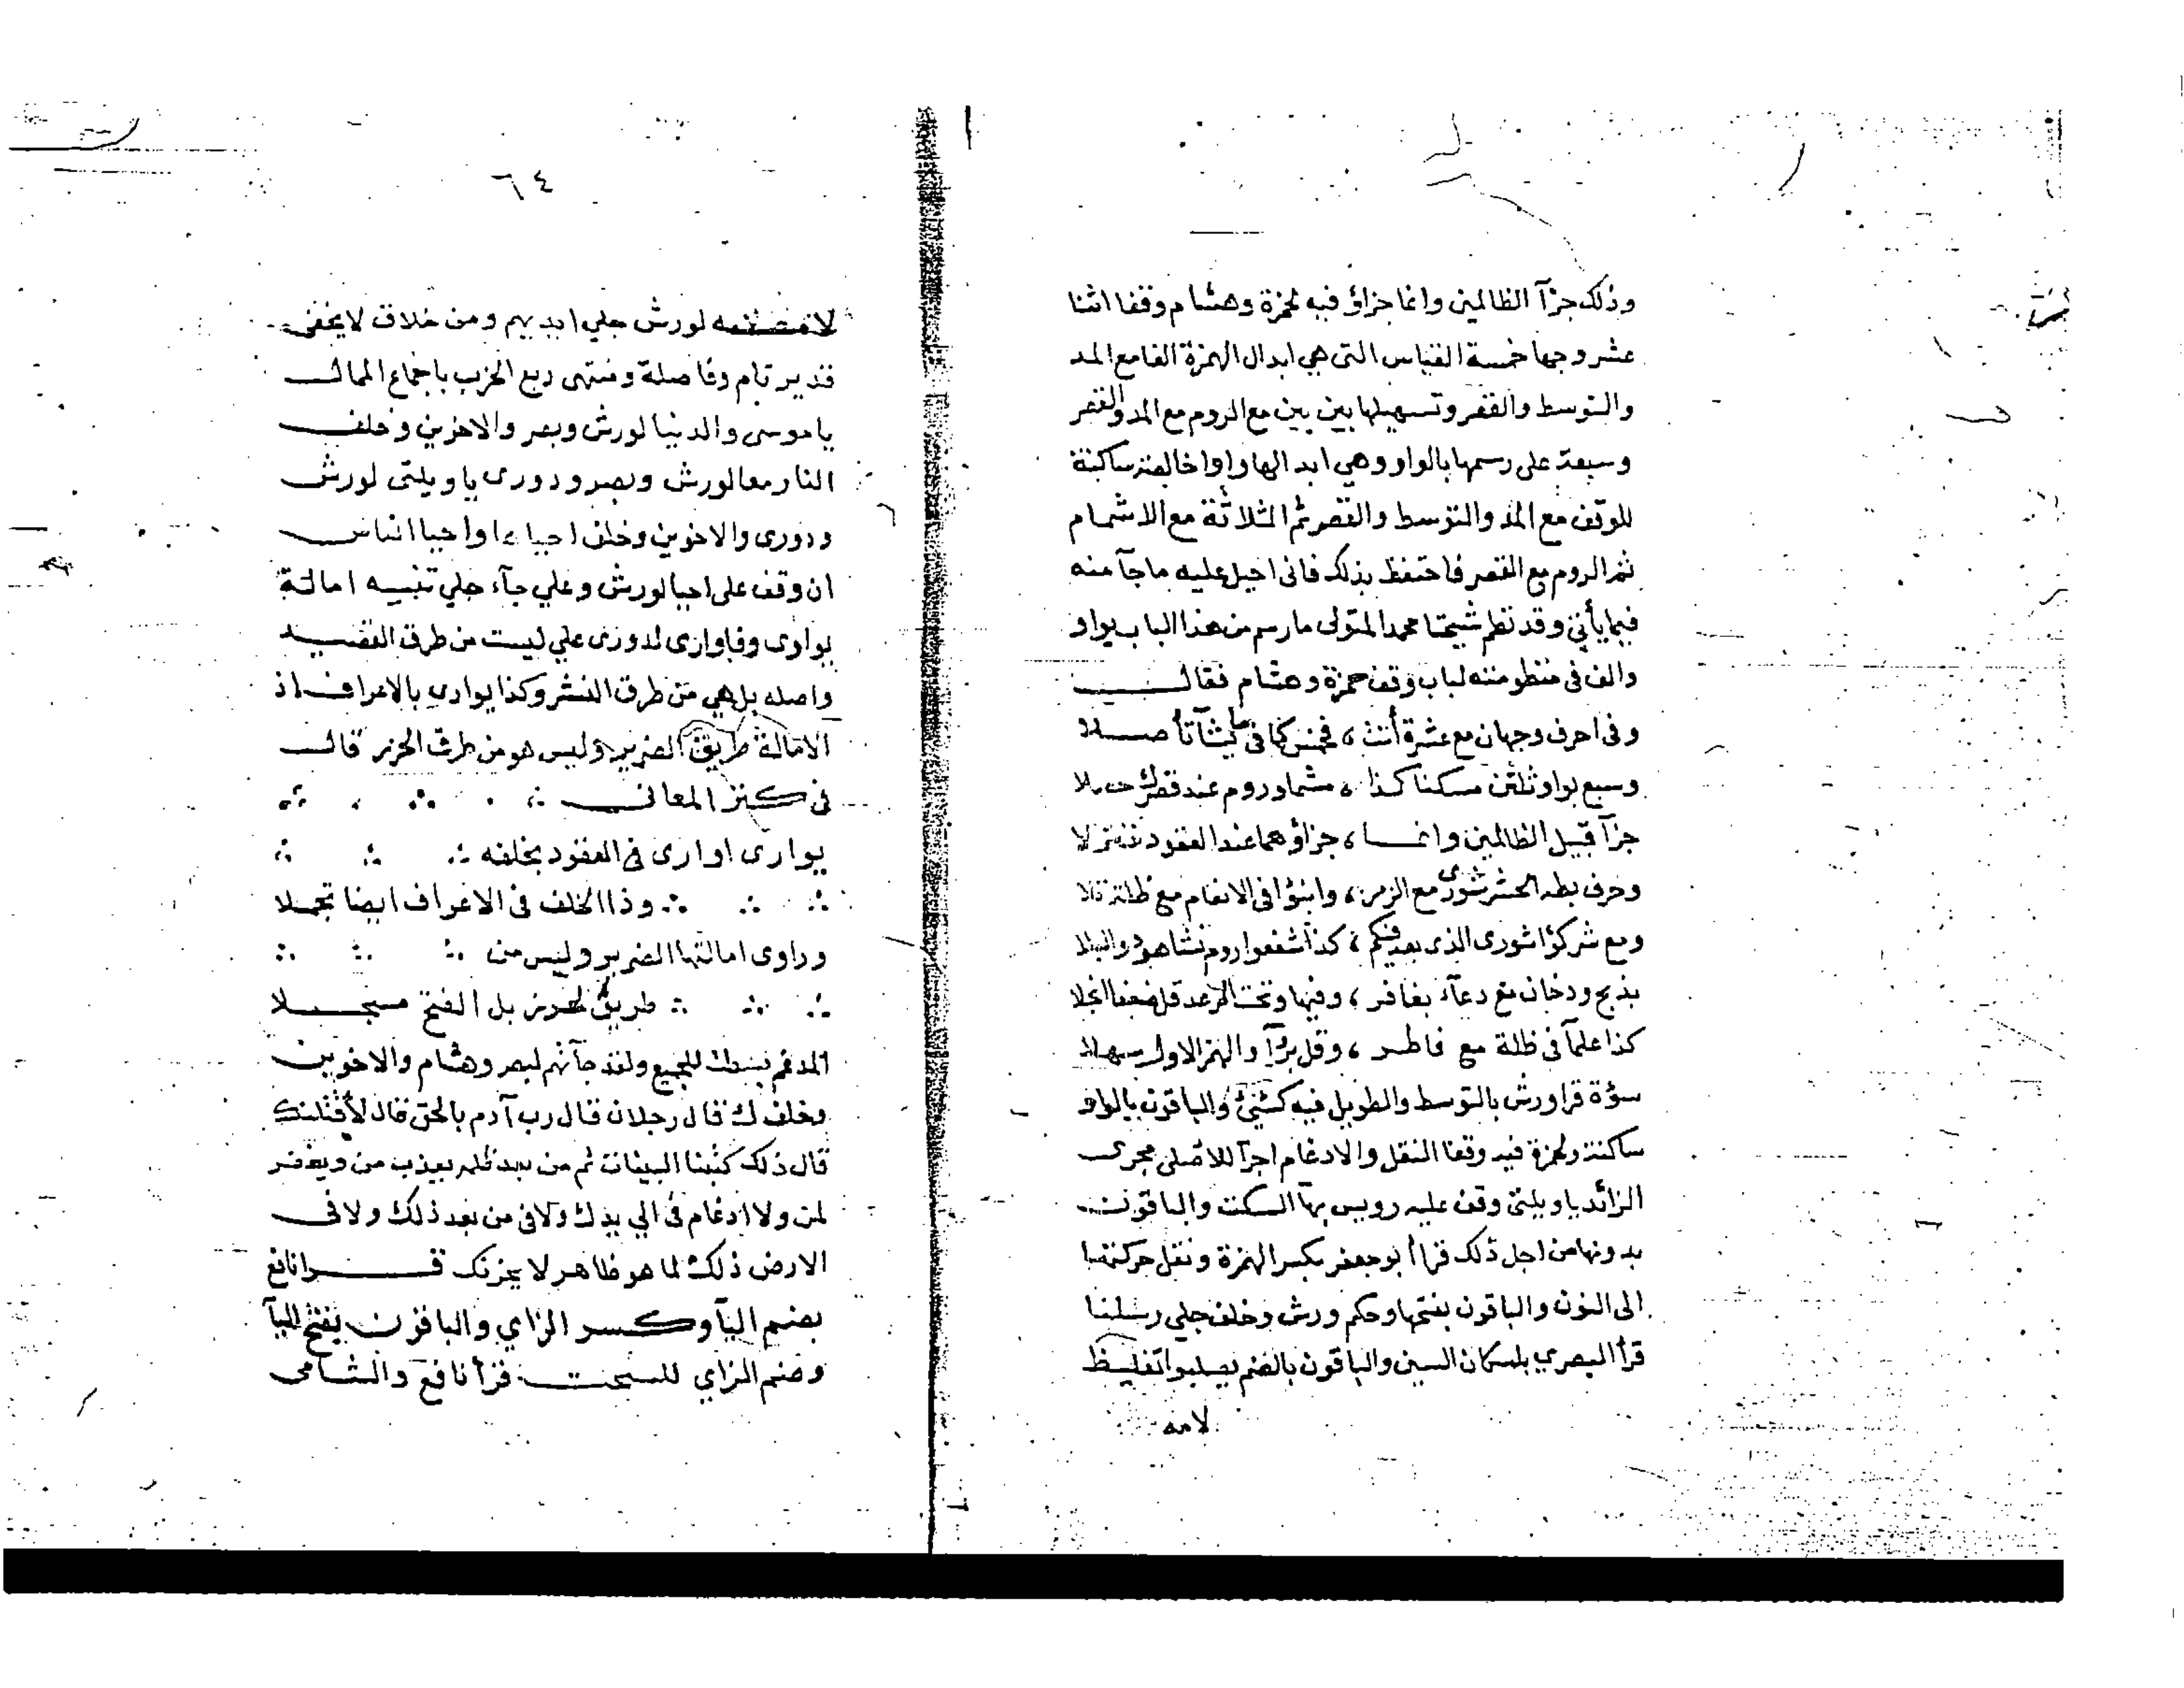 وذلك جزآ الظالمين وانما جزاؤ فيه لحمزة وهشام وقفا اثنا
عشر وجها خمسة القياس التى هي ابدال الهمزة الفا مع المد
والتوسط والقصر وتسهيلها بين بين مع الروم مع المد والقصر
وسبعة على رسمها بالواو وهي ابدالها واوا خالصة ساكنة
للوقف مع المد والتوسط والقصر ثم الثلاثة مع الاشمام
ثم الروم مع القصر فاحتفظ بذلك فانى احيل عليه ماجآ منه
فيما يأتي وقد نظم شيخنا محمد المتولى مارسم من هذا الباب بواو
والف فى منظومته لباب وقف حمزة وهشام فقال
وفى احرف وجهان مع عشرة أتت ، فخمس كما فى ما يشآ تأصلا
وسبع بواو ثلثن مسكنا كذا ، مشما وروم عند قصرك
جزآ قبيل الظالمين وانما ، جزاؤهما عند العقود
وحرف بطه الحشر شورى مع الزمر ، وانبؤا فى الانعام مع ظلة تلا
ومع شركؤا شورى الذى بعد فيكم ، كذا شفعوا روم نشا هود والبلا
بذبح ودخان مع دعآء بغافر ، وفيها وتحت الرعد قل ضعفا انجلا
كذا علمآ فى ظلة مع فاطر ، وقل برآ والهمز الاول سهلا
سؤة قرا ورش بالتوسط والطويل فيه كشئ والباقون بالواو
ساكنة ولحمزة فيه وقفا النقل والادغام اجرآ للاصلى مجرى
الزائد ياويلتى وقف عليه رويس بهآ السكت والباقون
بدونها من اجل ذلك قرا أبو جعفر بكسر الهمزة ونقل حركتها
الى النون والباقون بفتحها وحكم ورش وخلف جلي رسلنا
قرأ البصري باسكان السين والباقون بالضم يصلبوا تغليظ
لامه
٦٤
لورش جلي ايديهم ومن خلاف لايخفى
قدير تام وفاصلة ومنتهى ربع الحزب باجماع الممال
ياموسى والدنيا لورش وبصر والاخوين وخلف
النار معا لورش وبصر ودورى ياويلتى لورش
ودورى والاخوين وخلف احياها واحيا الناس
ان وقف على احيا لورش وعلي جآء جلي تنبيه امالة
يوارى وفاوارى لدورى علي ليست من طرق القصيد
واصله بل هي من طرق النشر وكذا يوارى بالاعراف اذ
الامالة طريق الضرير وليس هو من طرق الحرز قال
فى كنز المعانى
يوارى اوارى فى العقود بخلفه
وذا الخلف فى الاعراف ايضا تجملا
وراوى امالتها الضرير وليس من
طريق لحرز بل الفتح مسجلا
المدغم بسطت للجميع ولقد جآئهم لبصر وهشام والاخوين
وخلف ك قال رجلان قال رب آدم بالحق قال لأقتلنك
قال ذلك كتبنا البينات ثم من بعد ظلمه يعذب من ويغفر
لمن ولا ادغام فى الي يدك ولا فى من بعد ذلك ولا فى
الارض ذلك لما هو ظاهر لا يحزنك قرا نافع
بضم اليآ وكسر الزاي والباقون بفتح اليآ
وضم الزاي للسحت قرأ نافع والشامى